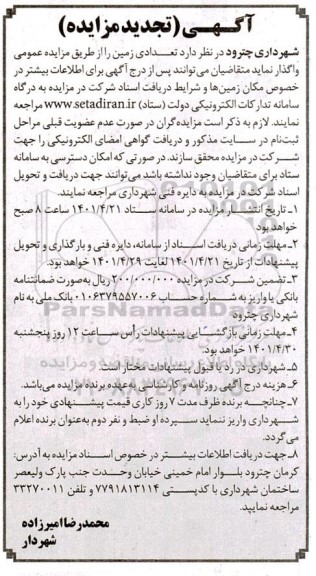 آگهی (تجدید مزایده)
شهرداری چترود در نظر دارد تعدادی زمین را از طریق مزایده عمومی
واگذار نماید متقاضیان می توانند پس از درج آگهی برای اطلاعات بیشتر در
خصوص مکان زمین‌ها و شرایط دریافت اسناد شرکت در مزایده به درگاه
سامانه تدارکات الکترونیکی دولت (ستاد) www.setadiran.ir مراجعه
نمایند. لازم به ذکر است مزایده گران در صورت عدم عضویت قبلی مراحل
ثبت‌نام در سایت مذکور و دریافت گواهی امضای الکترونیکی را جهت
شرکت در مزایده محقق سازند. در صورتی که امکان دسترسی به سامانه
ستاد برای متقاضیان وجود نداشته باشد می‌توانند جهت دریافت و تحویل
اسناد شرکت در مزایده به دایره فنی شهرداری مراجعه نمایند.
۱ـ تاریخ انتشار مزایده در سامانه ستاد ۱۴۰۱/۴/۲۱ ساعت ۸ صبح
خواهد بود
۲ـ مهلت زمانی دریافت اسناد از سامانه، دایره فنی و بارگذاری و تحویل
پیشنهادات از تاریخ ۱۴۰۱/۴/۲۱ لغایت ۱۴۰۱/۴/۲۹ خواهد بود.
۳ـ تضمین شرکت در مزایده ۲۰۰/۰۰۰/۰۰۰ ریال به‌صورت ضمانتنامه
بانکی یا واریز به شماره حساب ۰۱۰۶۳۷۹۵۵۷۰۰۶ بانک ملی به نام
شهرداری چترود
۴ـ مهلت زمانی بازگشایی پیشنهادات رأس ساعت ۱۲ روز پنجشنبه
۱۴۰۱/۴/۳۰ خواهد بود.
۵ـ شهرداری در رد یا قبول پیشنهادات مختار است.
۶ـ هزینه درج آگهی روزنامه و کارشناسی به‌عهده برنده مزایده می‌باشد.
۷ـ چنانچه برنده ظرف مدت ۷ روز کاری قیمت پیشنهادی خود را به
شهرداری واریز ننماید سپرده او ضبط و نفر دوم به‌عنوان برنده اعلام
می‌گردد.
۸ـ جهت دریافت اطلاعات بیشتر در خصوص اسناد مزایده به آدرس:
کرمان چترود بلوار امام خمینی خیابان وحدت جنب پارک ولیعصر
ساختمان شهرداری با کدپستی ۷۷۹۱۸۱۳۱۱۴ و تلفن ۳۳۲۷۰۰۱۱
مراجعه نمایید.
محمدرضا امیرزاده
شهردار